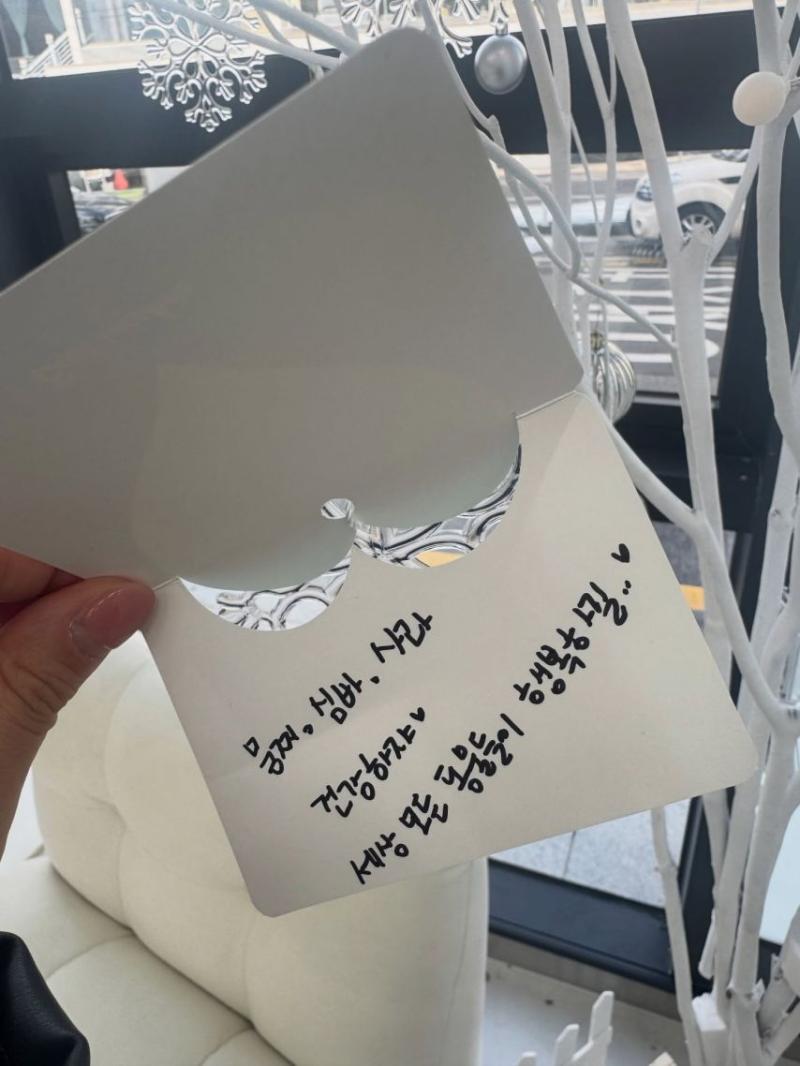 뭉찌, 심바, 사랑
건강하자♥
세상 모든 동물들이 행복하길..♥